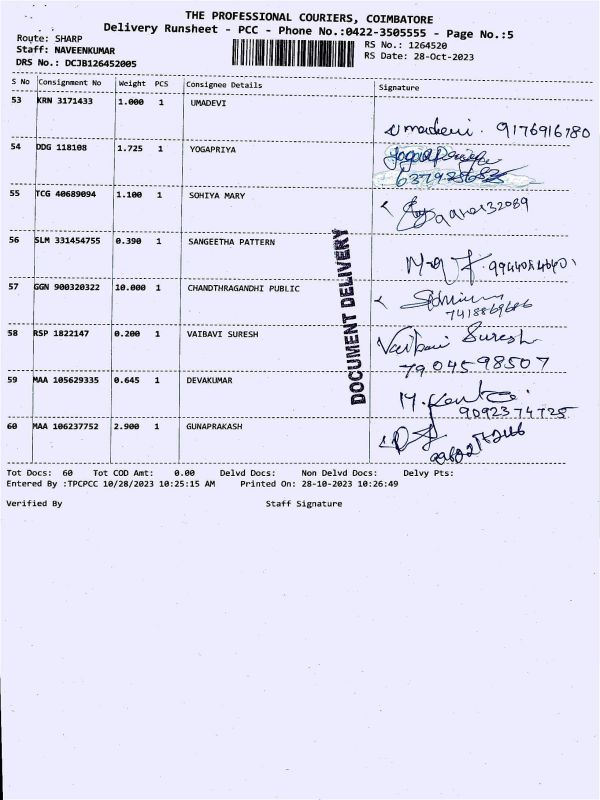 THE PROFESSIONAL COURIERS, COIMBATORE
Delivery Runsheet - PCC - Phone No.:0422-3505555 - Page No.:5
Route: SHARP
Staff: NAVEENKUMAR
DRS No.: DCJB126452005
RS No.: 1264520
RS Date: 28-Oct-2023
S No Consignment No Weight PCS Consignee Details Signature
53 KRN 3171433 1.000 1 UMADEVI
Umadevi . 9176916780
54 DDG 118108 1.725 1 YOGAPRIYA
55 TCG 40689094 1.100 1 SOHIYA MARY
56 SLM 331454755 0.390 1 SANGEETHA PATTERN
57 GGN 900320322 10.000 1 CHANDTHRAGANDHI PUBLIC
7418869686
58 RSP 1822147 0.200 1 VAIBAVI SURESH
Vaibavi Suresh
7904598507
59 MAA 105629335 0.645 1 DEVAKUMAR
9092374725
60 MAA 106237752 2.900 1 GUNAPRAKASH
DOCUMENT DELIVERY
Tot Docs: 60 Tot COD Amt: 0.00 Delvd Docs: Non Delvd Docs: Delvy Pts:
Entered By :TPCPCC 10/28/2023 10:25:15 AM Printed On: 28-10-2023 10:26:49
Verified By Staff Signature